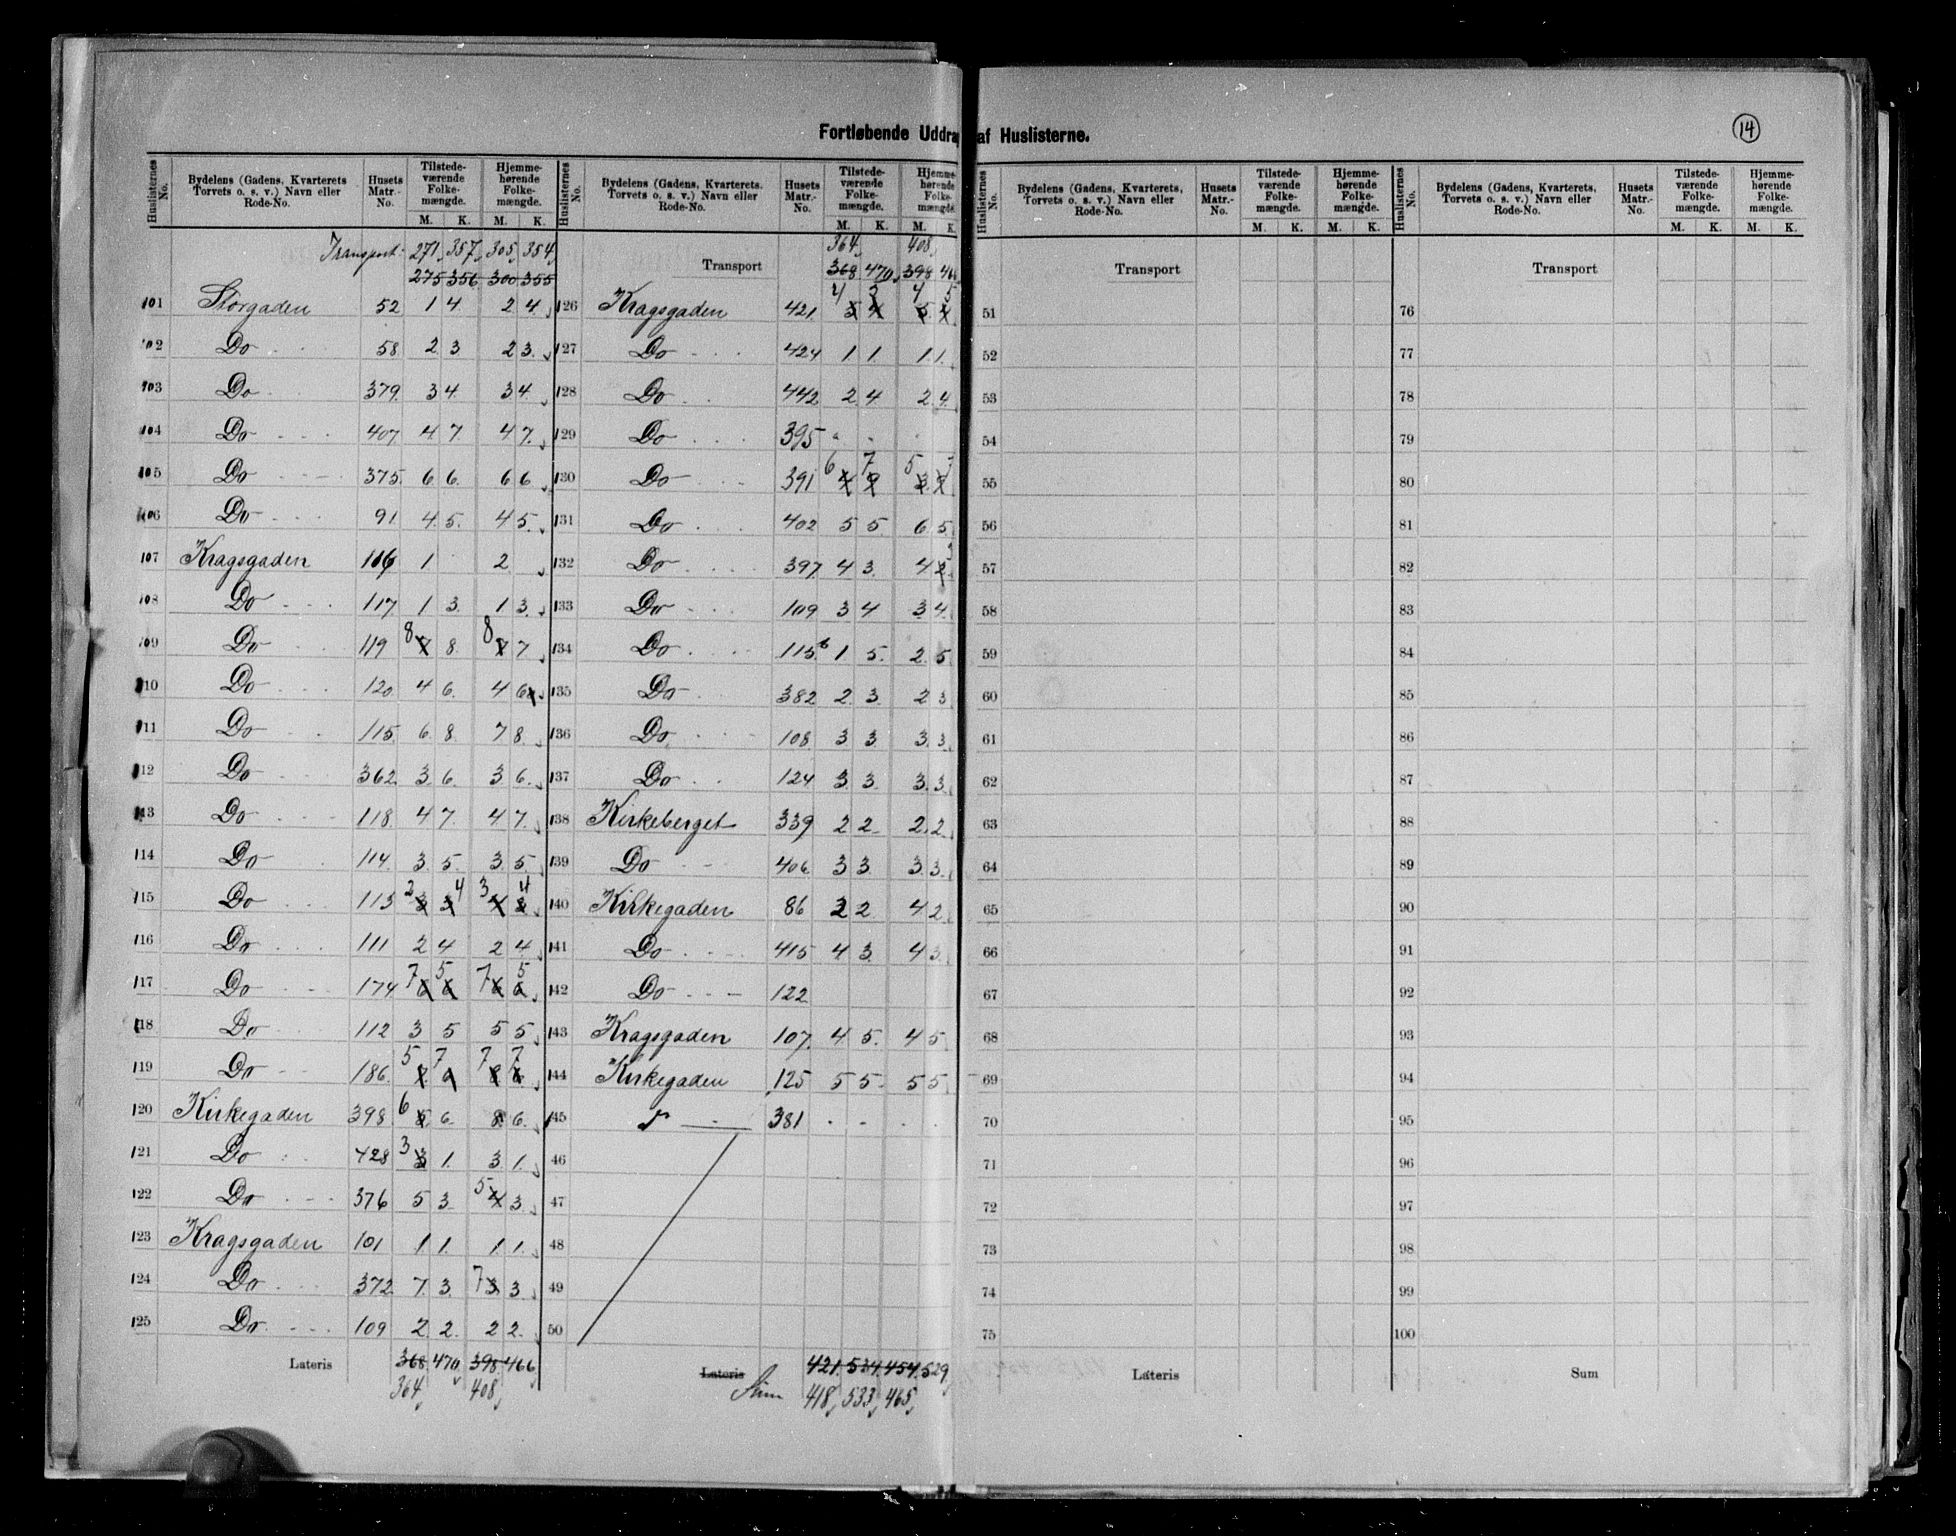 Fortløbende Uddra af Huslisterne.
14
Huslisternes No. Bydelens (Gadens, Kvarterets Torvets o. s. v.) Navn eller Rode-No. Husets Matr.-No. Tilstede-værende Folke-mængde. M. K. Hjemme-hørende Folke-mængde. M. K.
Transport: 271 357 305 354
275 356 300 355
101 Storgaden 52 1 4 2 4
102 Do 58 2 3 2 3
103 Do 379 3 4 3 4
104 Do 407 4 7 4 7
105 Do 375 6 6 6 6
106 Do 91 4 5 4 5
107 Kragsgaden 106 1 2
108 Do 117 1 3 1 3
109 Do 119 8 8 8 7
110 Do 120 4 6 4 6
111 Do 115 6 8 7 8
112 Do 362 3 6 3 6
113 Do 118 4 7 4 7
114 Do 114 3 5 3 5
115 Do 113 2 4 3 4
116 Do 111 2 4 2 4
117 Do 174 7 5 7 5
118 Do 112 3 5 5 5
119 Do 186 5 7 7 7
120 Kirkegaden 398 6 6 8 6
121 Do 428 3 1 3 1
122 Do 376 5 3 5 3
123 Kragsgaden 101 1 1 1 1
124 Do 372 7 3 7 3
125 Do 109 2 2 2 2
Lateris 368 470 398 466
364 408
Huslisternes No. Bydelens (Gadens, Kvarterets, Torvets o. s. v.) Navn eller Rode-No. Husets Matr.-No. Tilstede-værende Folke-mængde. M. K. Hjemme-hørende Folke-mængde. M. K.
364 408
Transport 368 470 398 466
126 Kragsgaden 421 4 3 4 5
127 Do 424 1 1 1 1
128 Do 442 2 4 2 4
129 Do 395
130 Do 391 6 7 5
131 Do 402 5 5 6 5
132 Do 397 4 3 4 3
133 Do 109 3 4 3 4
134 Do 115b 1 5 2 5
135 Do 382 2 3 2 3
136 Do 108 3 3 3 3
137 Do 124 3 3 3 3
138 Kirkeberget 339 2 2 2 2
139 Do 406 3 3 3 3
140 Kirkegaden 86 2 2 4 2
141 Do 415 4 3 4 3
142 Do 122
143 Kragsgaden 107 4 5 4 5
144 Kirkegaden 125 5 5 5 5
145 " 381
46
47
48
49
50
Lateris 421 534 454 529
Sum 418 533 465
Huslisternes No. Bydelens (Gadens, Kvarterets, Torvets o. s. v.) Navn eller Rode-No. Husets Matr.-No. Tilstede-værende Folke-mængde. M. K. Hjemme-hørende Folke-mængde. M. K.
Transport
51
52
53
54
55
56
57
58
59
60
61
62
63
64
65
66
67
68
69
70
71
72
73
74
75
Lateris
Huslisternes No. Bydelens (Gadens, Kvarterets, Torvets o. s. v.) Navn eller Rode-No. Husets Matr.-No. Tilstede-værende Folke-mængde. M. K. Hjemme-hørende Folke-mængde. M. K.
Transport
76
77
78
79
80
81
82
83
84
85
86
87
88
89
90
91
92
93
94
95
96
97
98
99
100
Sum